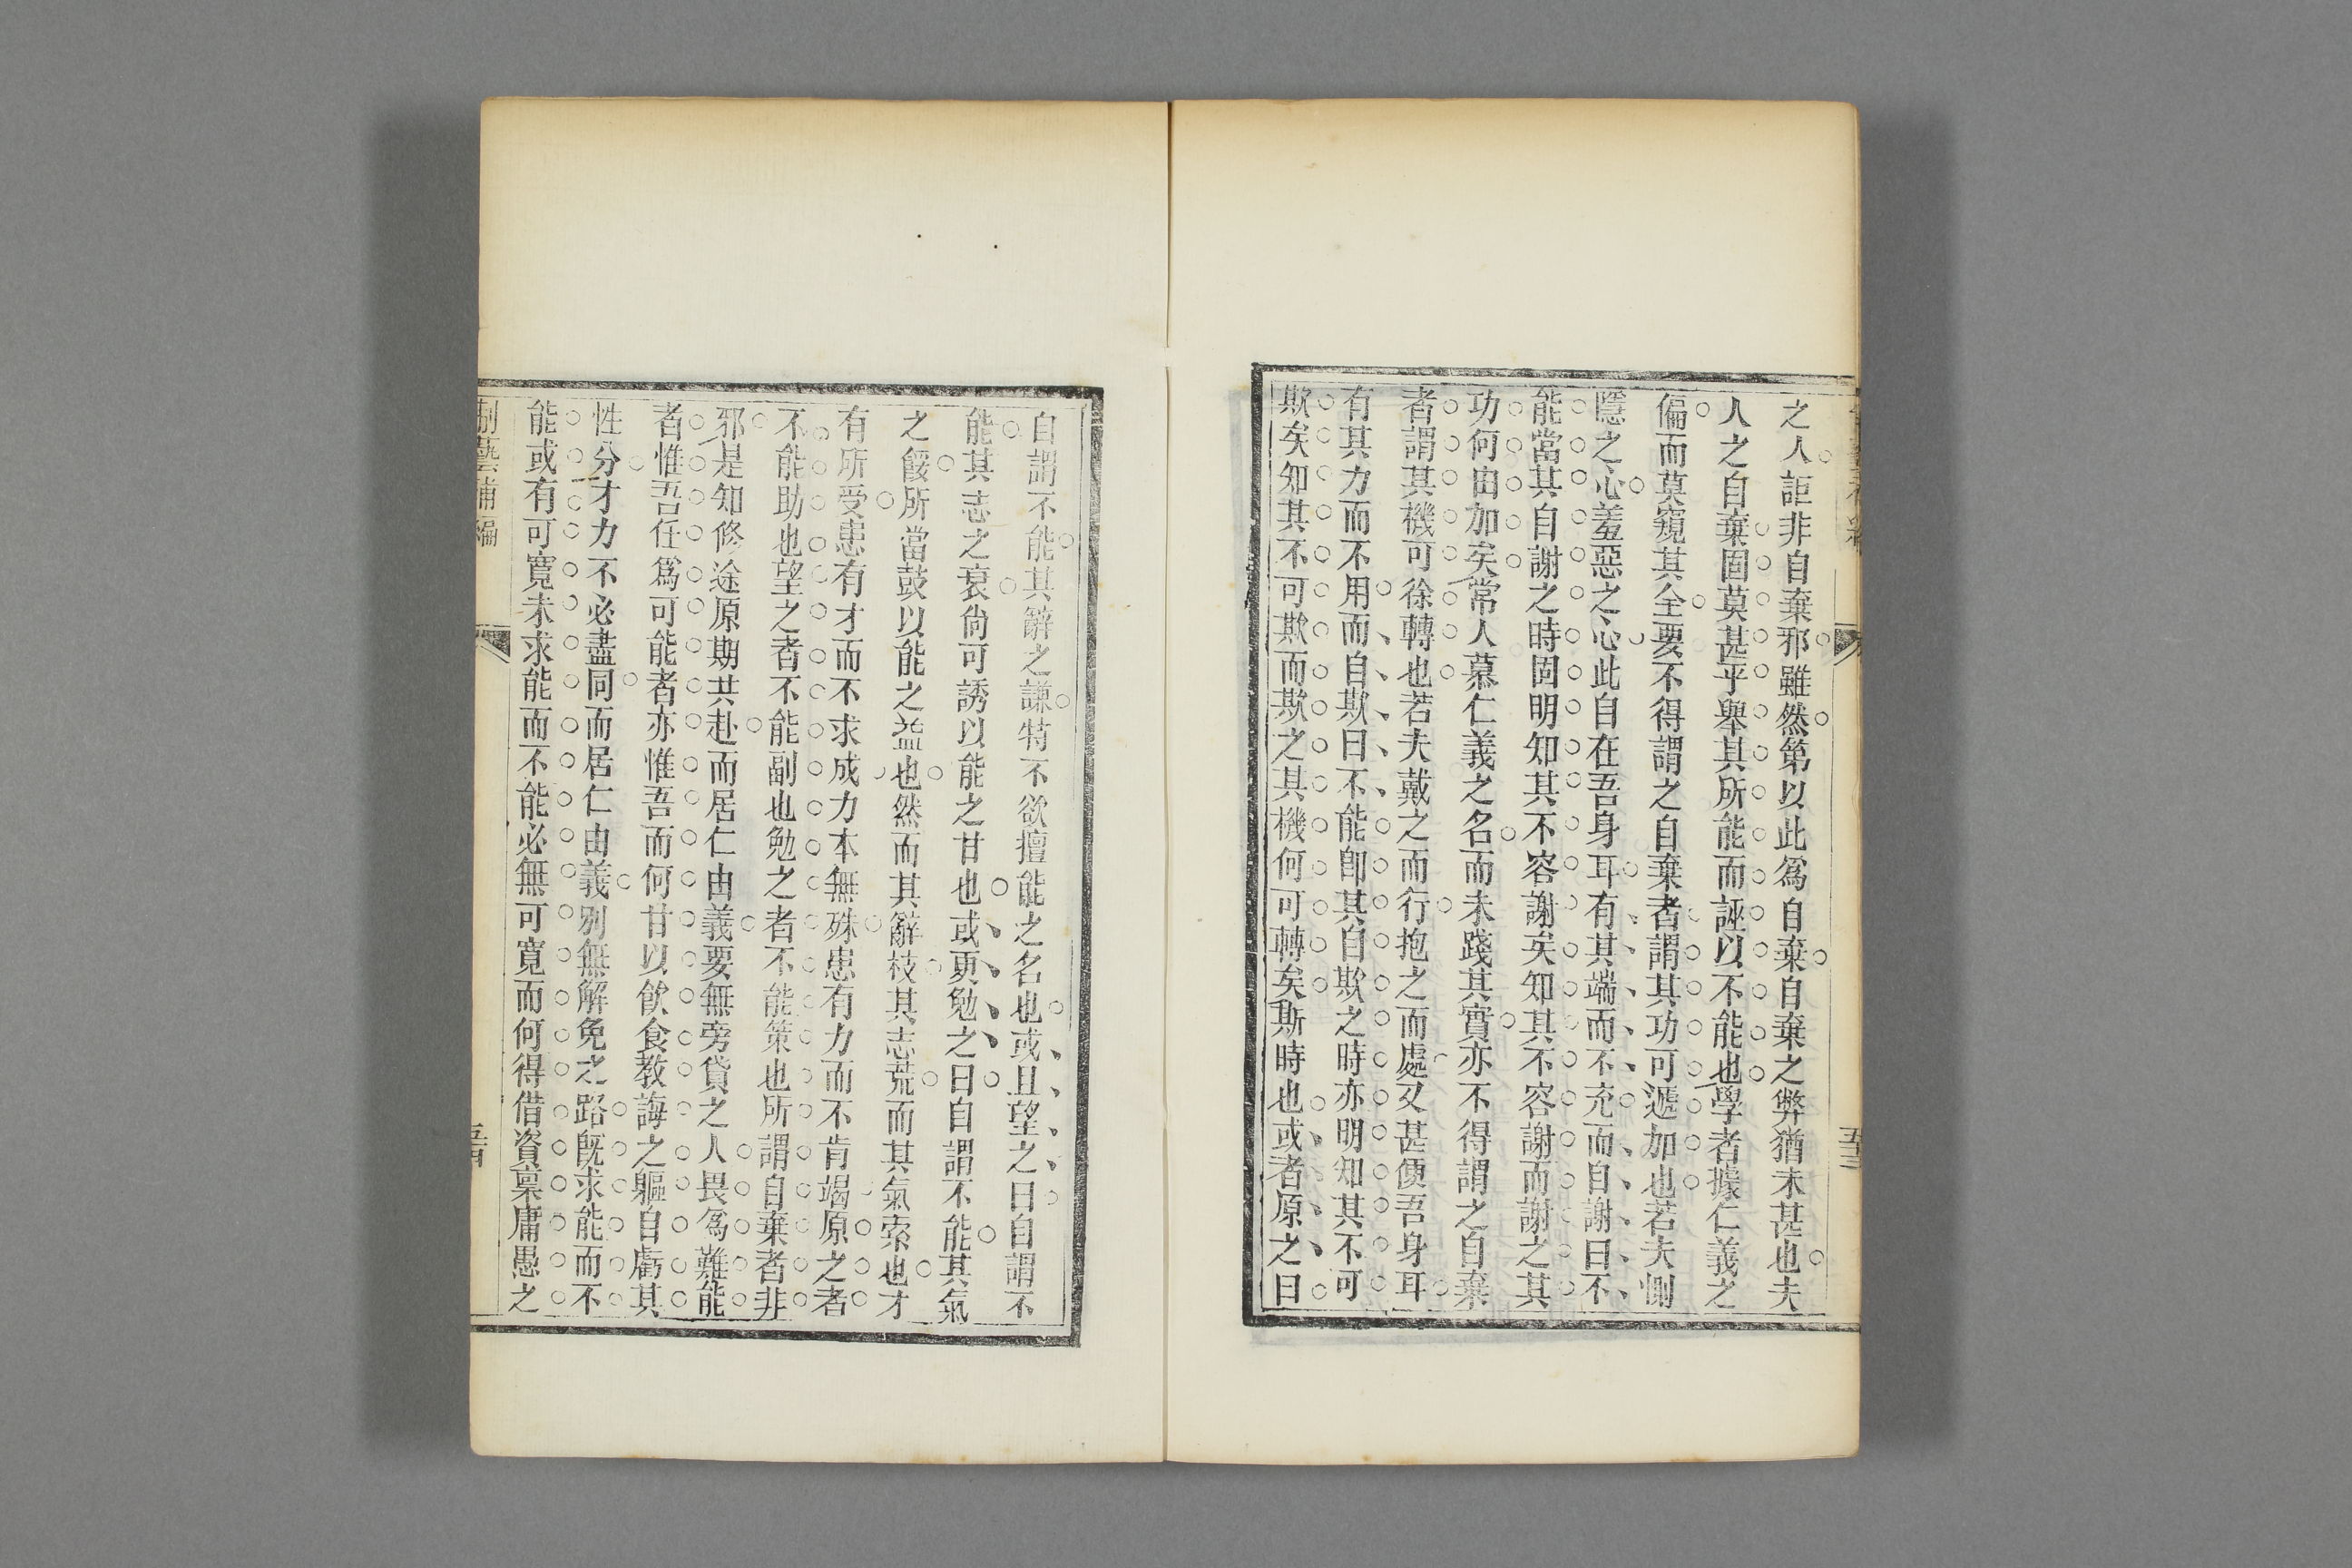 之人詎非自棄邪雖然第以此爲自棄自棄之弊猶未甚也夫
人之自棄固莫甚乎舉其所能而誣以不能也學者據仁義之
偏而莫窺其全要不得謂之自棄者謂其功可遞加也若夫惻
隱之心羞惡之心此自在吾身耳有其端而不充而自謝曰不
能當其自謝之時固明知其不容謝矣知其不容謝而謝之其
功何由加矣常人慕仁義之名而未踐其實亦不得謂之自棄
者謂其機可徐轉也若夫戴之而行抱之而處又甚便吾身耳
有其力而不用而自欺曰不能卽其自欺之時亦明知其不可
欺矣知其不可欺而欺之其機何可轉矣斯時也或者原之曰
自謂不能其辭之謙特不欲擅能之名也或且望之曰自謂不
能其志之衰尙可誘以能之甘也或更勉之曰自謂不能其氣
之餒所當鼓以能之益也然而其辭枝其志荒而其氣索也才
有所受患有才而不求成力本無殊患有力而不肯竭原之者
不能助也望之者不能副也勉之者不能策也所謂自棄者非
邪是知修途原期共赴而居仁由義要無旁貸之人畏爲難能
者惟吾任爲可能者亦惟吾而何甘以飮食教誨之軀自虧其
性分才力不必盡同而居仁由義別無解免之路旣求能而不
能或有可寬未求能而不能必無可寬而何得借資稟庸愚之
制藝補編
五古